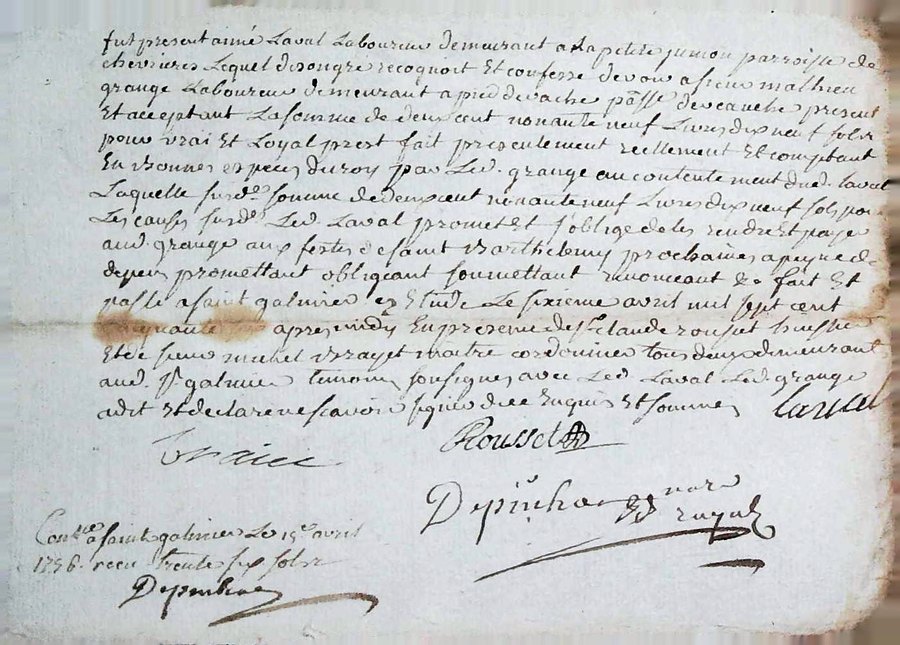 fut present aimé Laval Laboureur demeurant a Lapetite jumon parroisse de
chevrieres Lequel de son gre recognoit Et confesse devoir a sieur mathieu
grange Laboureur demeurant a pied de vache psse devauche present
Et acceptant La somme de deux cent nonante neuf Livres dix neuf sols
pour vrai Et Loyal prest fait presentement reellement Et comptant
En bonnes especes du roy par Led. grange au contentement dud. Laval
Laquelle susde somme de deux cent nonante neuf Livres dix neuf sols pour
Les causes susdes Led Laval promet Et s'oblige de les rendre Et paye
aud. grange aux festes de saint Barthelemy prochaines a peyne de
depens promettant obligeant soumettant renonceant &a fait Et
passé a saint galmier Etude Le sixieme avril mil sept cent
cinquante six apres midy En presence de sr Claude rousset huissier
Et de sieur michel Brazet maitre cordonnier tous deux demeurant
aud. st galmier temoins sousignes avec Led Laval Led. grange
a dit Et declare ne scavoir signer de ce Enquis Et sommé Laval
Rousset
Depinhac
Conlle a saint galmier Le 15e avril
1756. recu trente six sols
Depinhac